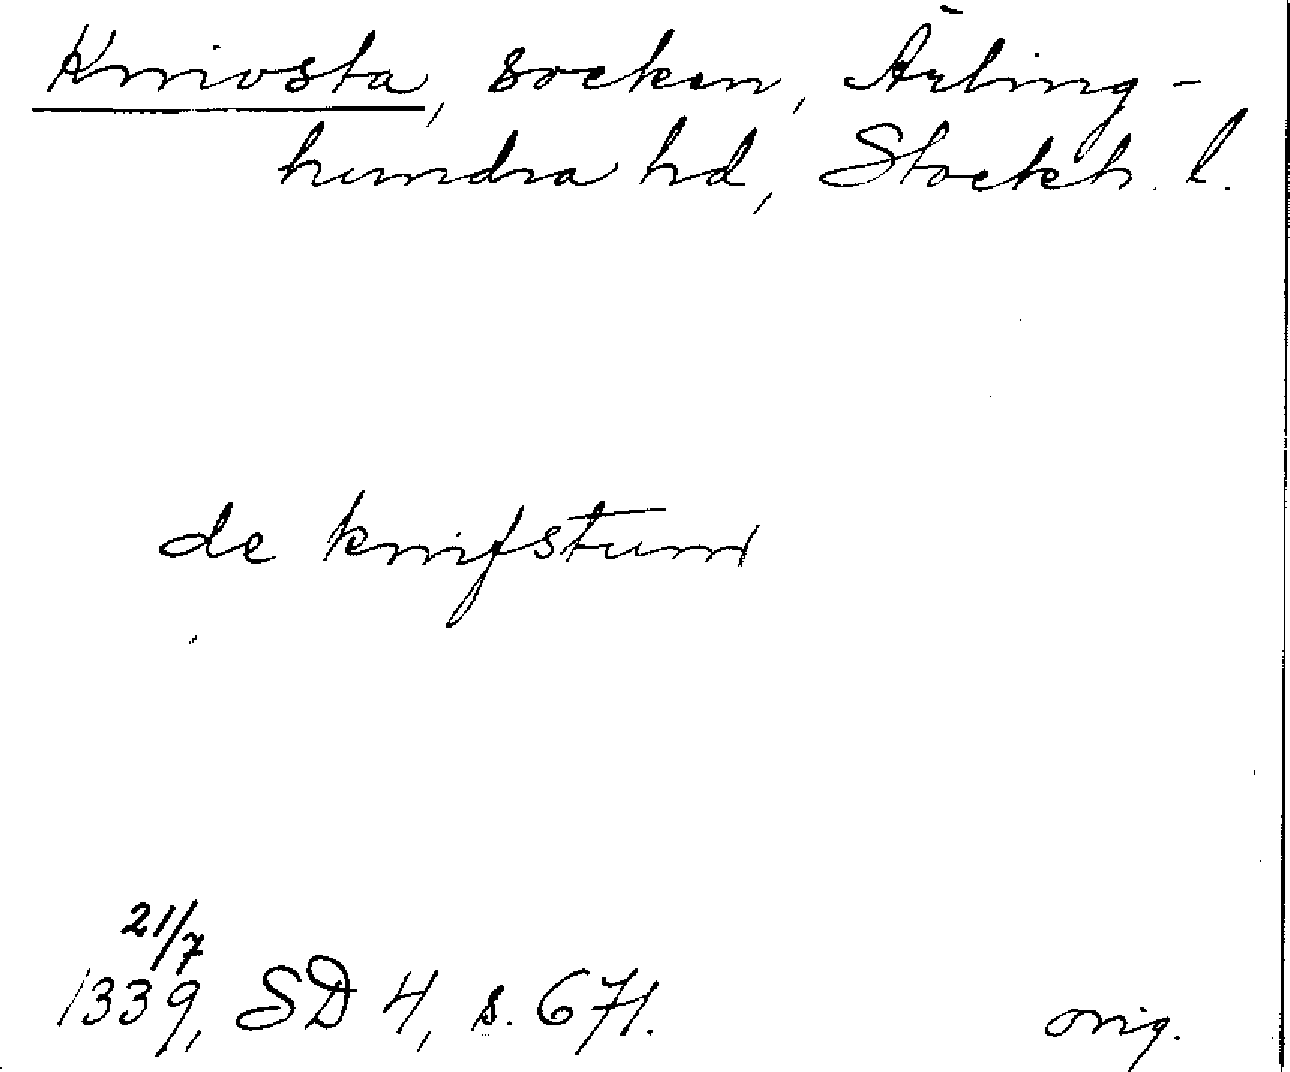 Knivsta, socken, Ärling-
hundra hd, Stockh. l.
de knifstum
21/7
1339, SD 4, s. 671.
orig.